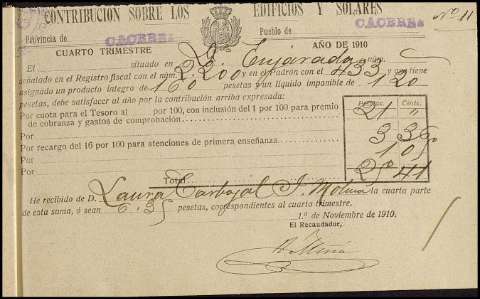 CONTRIBUCIÓN SOBRE LOS EDIFICIOS Y SOLARES
Nº 11
Provincia de CÁCERES Pueblo de CÁCERES
CUARTO TRIMESTRE AÑO DE 1910
El situado en D. Enjarada núm.
señalado en el Registro fiscal con el núm. 2.200 y en el Padrón con el 433 y que tiene
asignado un producto íntegro de 160 pesetas y un líquido imponible de 120
pesetas, debe satisfacer al año por la contribución arriba expresada:
Pesetas. Cénts.
Por cuota para el Tesoro al por 100, con inclusión del 1 por 100 para premio
de cobranza y gastos de comprobación 21 "
Por 3 36
Por recargo del 16 por 100 para atenciones de primera enseñanza
Por 1 05
Total 25 41
He recibido de D. Laura Carbajal la cuarta parte
de esta suma, ó sean 6.35 pesetas, correspondientes al cuarto trimestre.
1.º de Noviembre de 1910.
El Recaudador,